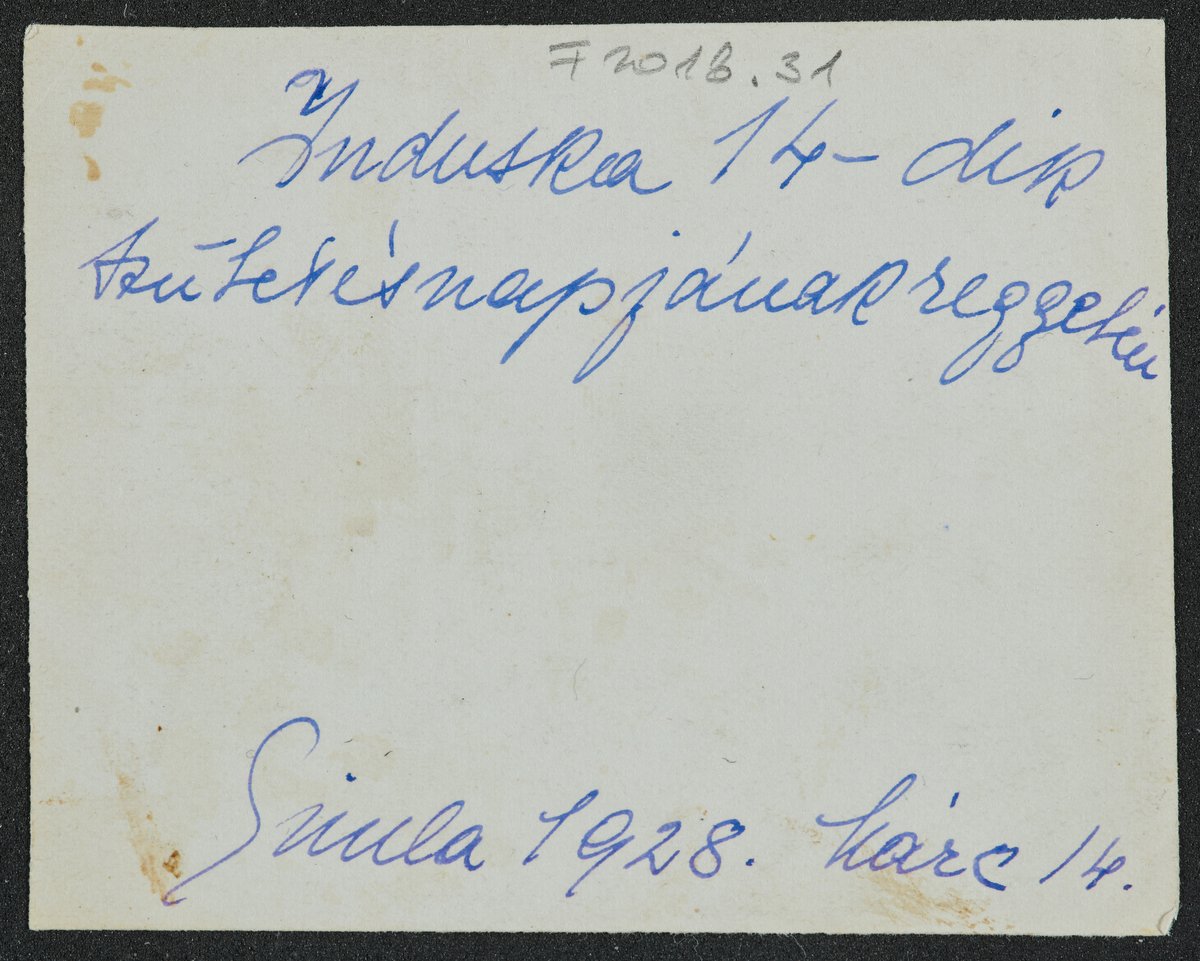 F 2018.31
Induska 14-dik
születésnapjának reggelén
Gyula 1928. Márc 14.